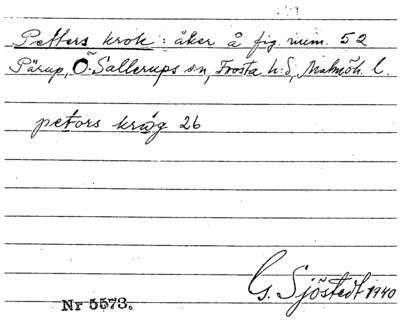 Petters krok: åker å fig. num. 52
Pärup, Ö. Sallerups sn, Frosta h:d, Malmöh. l.
petors kråg 26
G. Sjöstedt 1940
Nr 5573.